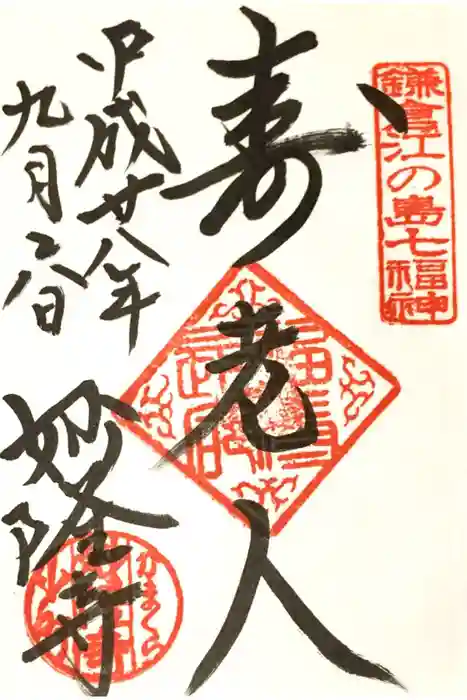 鎌倉江の島七福神
寿老人
平成廿八年
九月六日
妙隆寺
かまくら